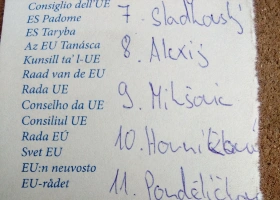 Consiglio dell'UE
ES Padome
ES Taryba
Az EU Tanácsa
Kunsill ta' l-UE
Raad van de EU
Rada UE
Conselho da UE
Consiliul UE
Rada EÚ
Svet EU
EU:n neuvosto
EU-rådet
7. Sladkovský
8. Alexij
9. Mikšovic
10.
11.